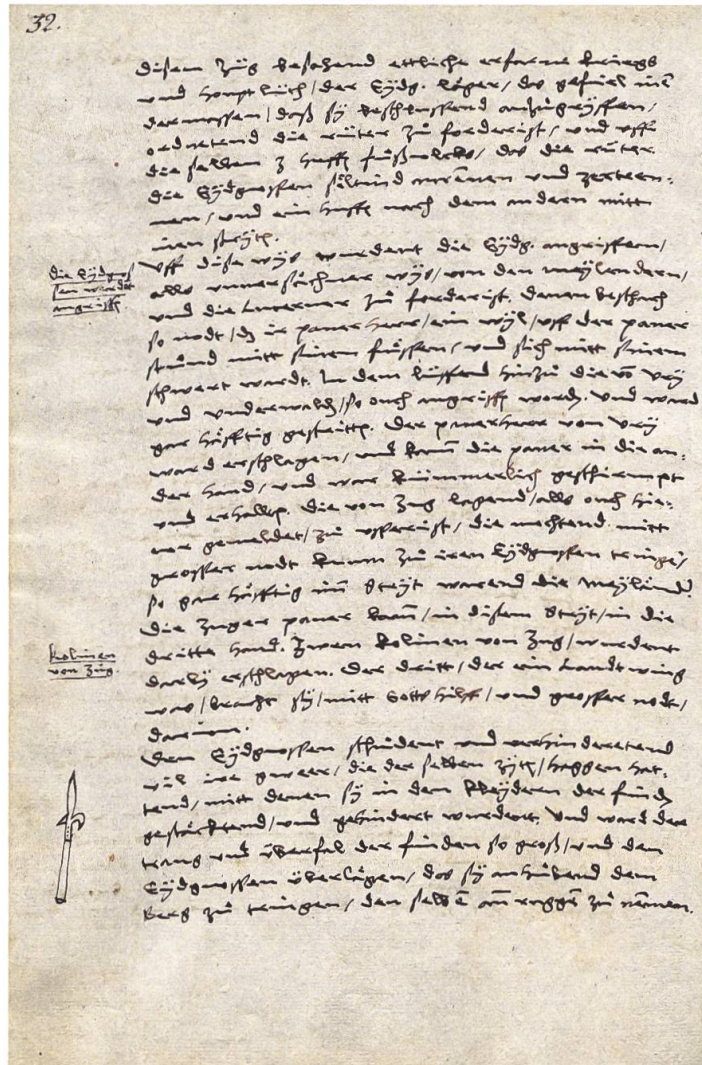 32.
disem Züg besahend ettliche erfarne kriegs
und houptlüth / der Eydg. läger / das gefiel inē
dermassen / daß sÿ beschlussend anzugryffen /
ordnetend die rüter zů forderist / und uff
die selben 3 huffē fůßvolcks / das die rüter
die Eydgnossen söltind und zerteen-
nen / und ein huffē nach dem andern mitt
inen strytē.
Uff dise wys wurdent die Eydg. angriffen /
die Eydgnos
sen werdēt
angriffē
alls unversächner wys / von den meylendern /
und die Lucerner zů forderist. denen beschach
so nodt / dz ir paner herr / ein wyl / uff der paner
stůnd mitt sinen füssen / und sich mitt sinem
schwert wardt. In dem lüffend hinzů die vō Ury
und underwaldē / so ouch angriffē wordē. und ward
gar häfftig gestrittē. Der panerherr von Ury
ward erschlagen / und kam̄ die paner in die an-
der hand / und war kümmerlich geschirmpt
und erhaltē. die von Zug lagend / alls ouch hie-
vor gemeldet / zů usserist / die mochtend mitt
grosser nodt kum zů iren Eydgnossen tringē /
so gar häfftig im̄ stryt warend die Meyländ.
Die Zuger paner kam̄ / in disem stryt / in die
kolinen
von Zug
dritte hand. Zween kolinen von Zug / wurdent
darby erschlagen. Der dritt / der ein Landtwing
was / bracht sÿ / mitt Gotts hilff / und grosser nodt /
darvon.
Den Eydgnossen schadent und verhinderetend
vil ire gweer / die der selben zytt / haggen hat-
tend / mitt denen sÿ in den kleydern der findē
gestäcktend / und gehindert wurdent. Und ward der
trang und überfal der finden so groß / und den
Eydgnossen überlägen / das sÿ anhůbend dem
berg zů tringen / den selbē am̄ ruggē zů nēmen.